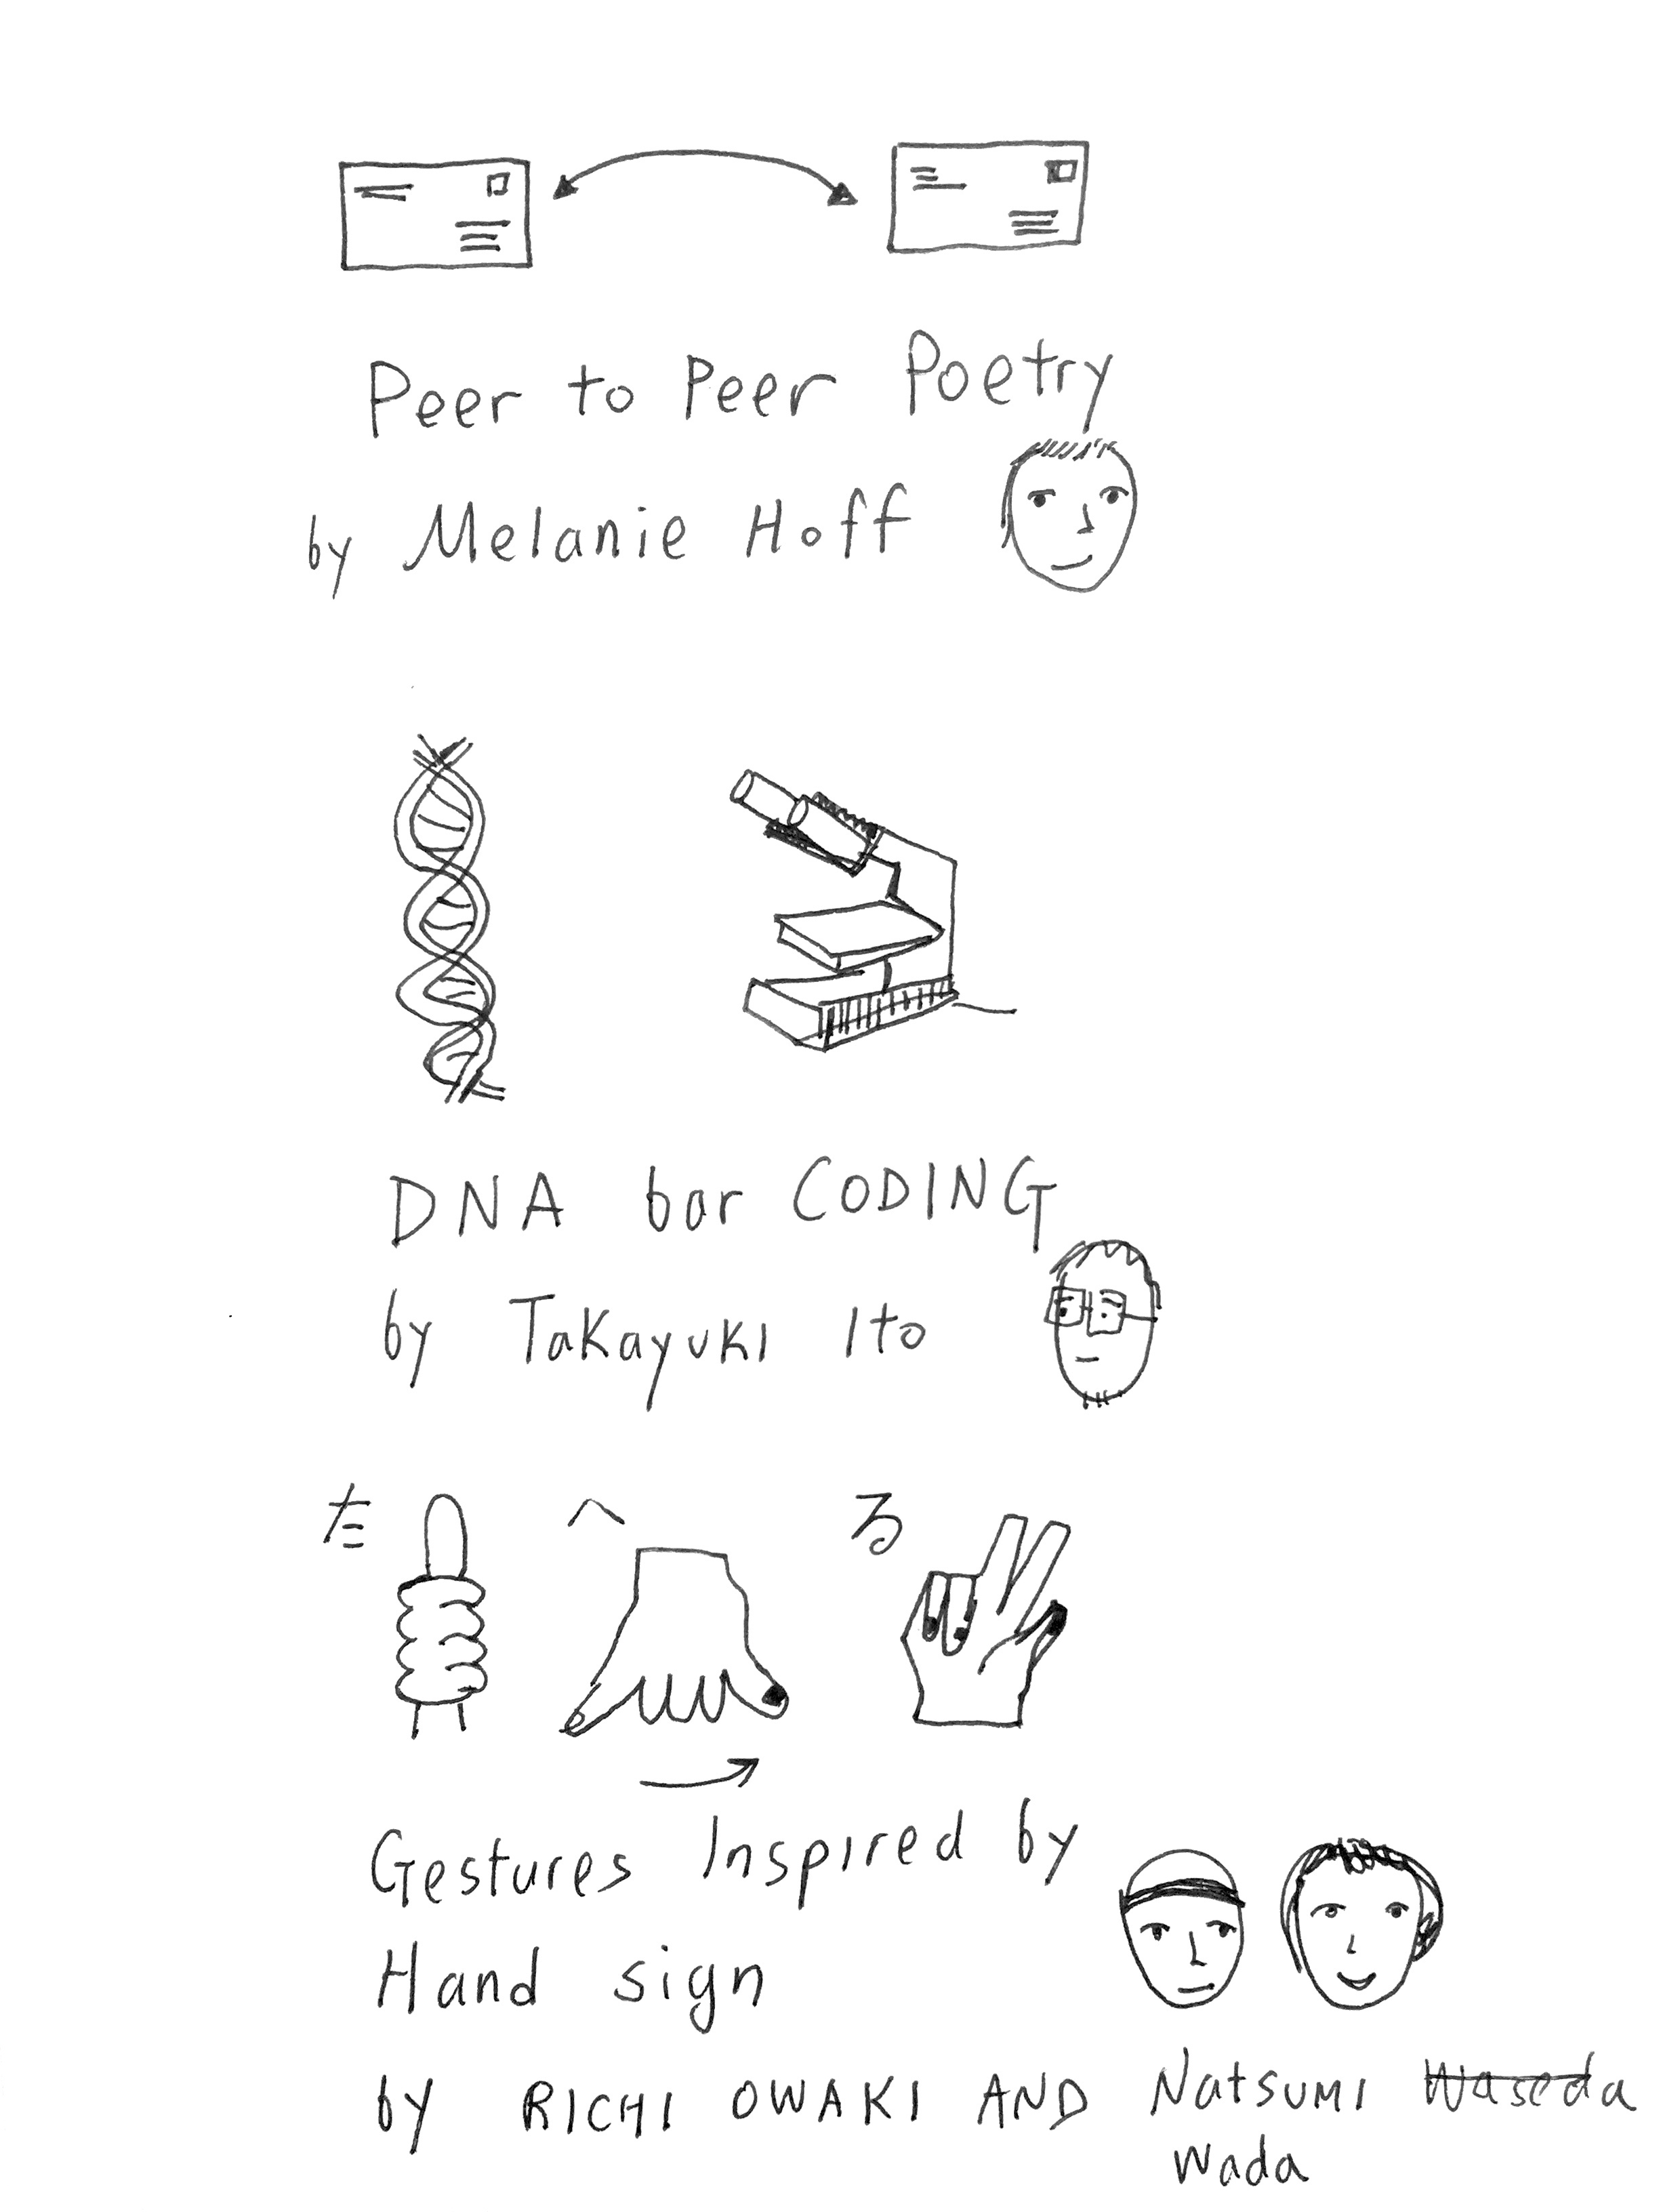 Peer to Peer Poetry
by Melanie Hoff
DNA bar CODING
by Takayuki Ito
た へ る
Gestures Inspired by
Hand sign
by RICHI OWAKI AND Natsumi Waseda
Wada